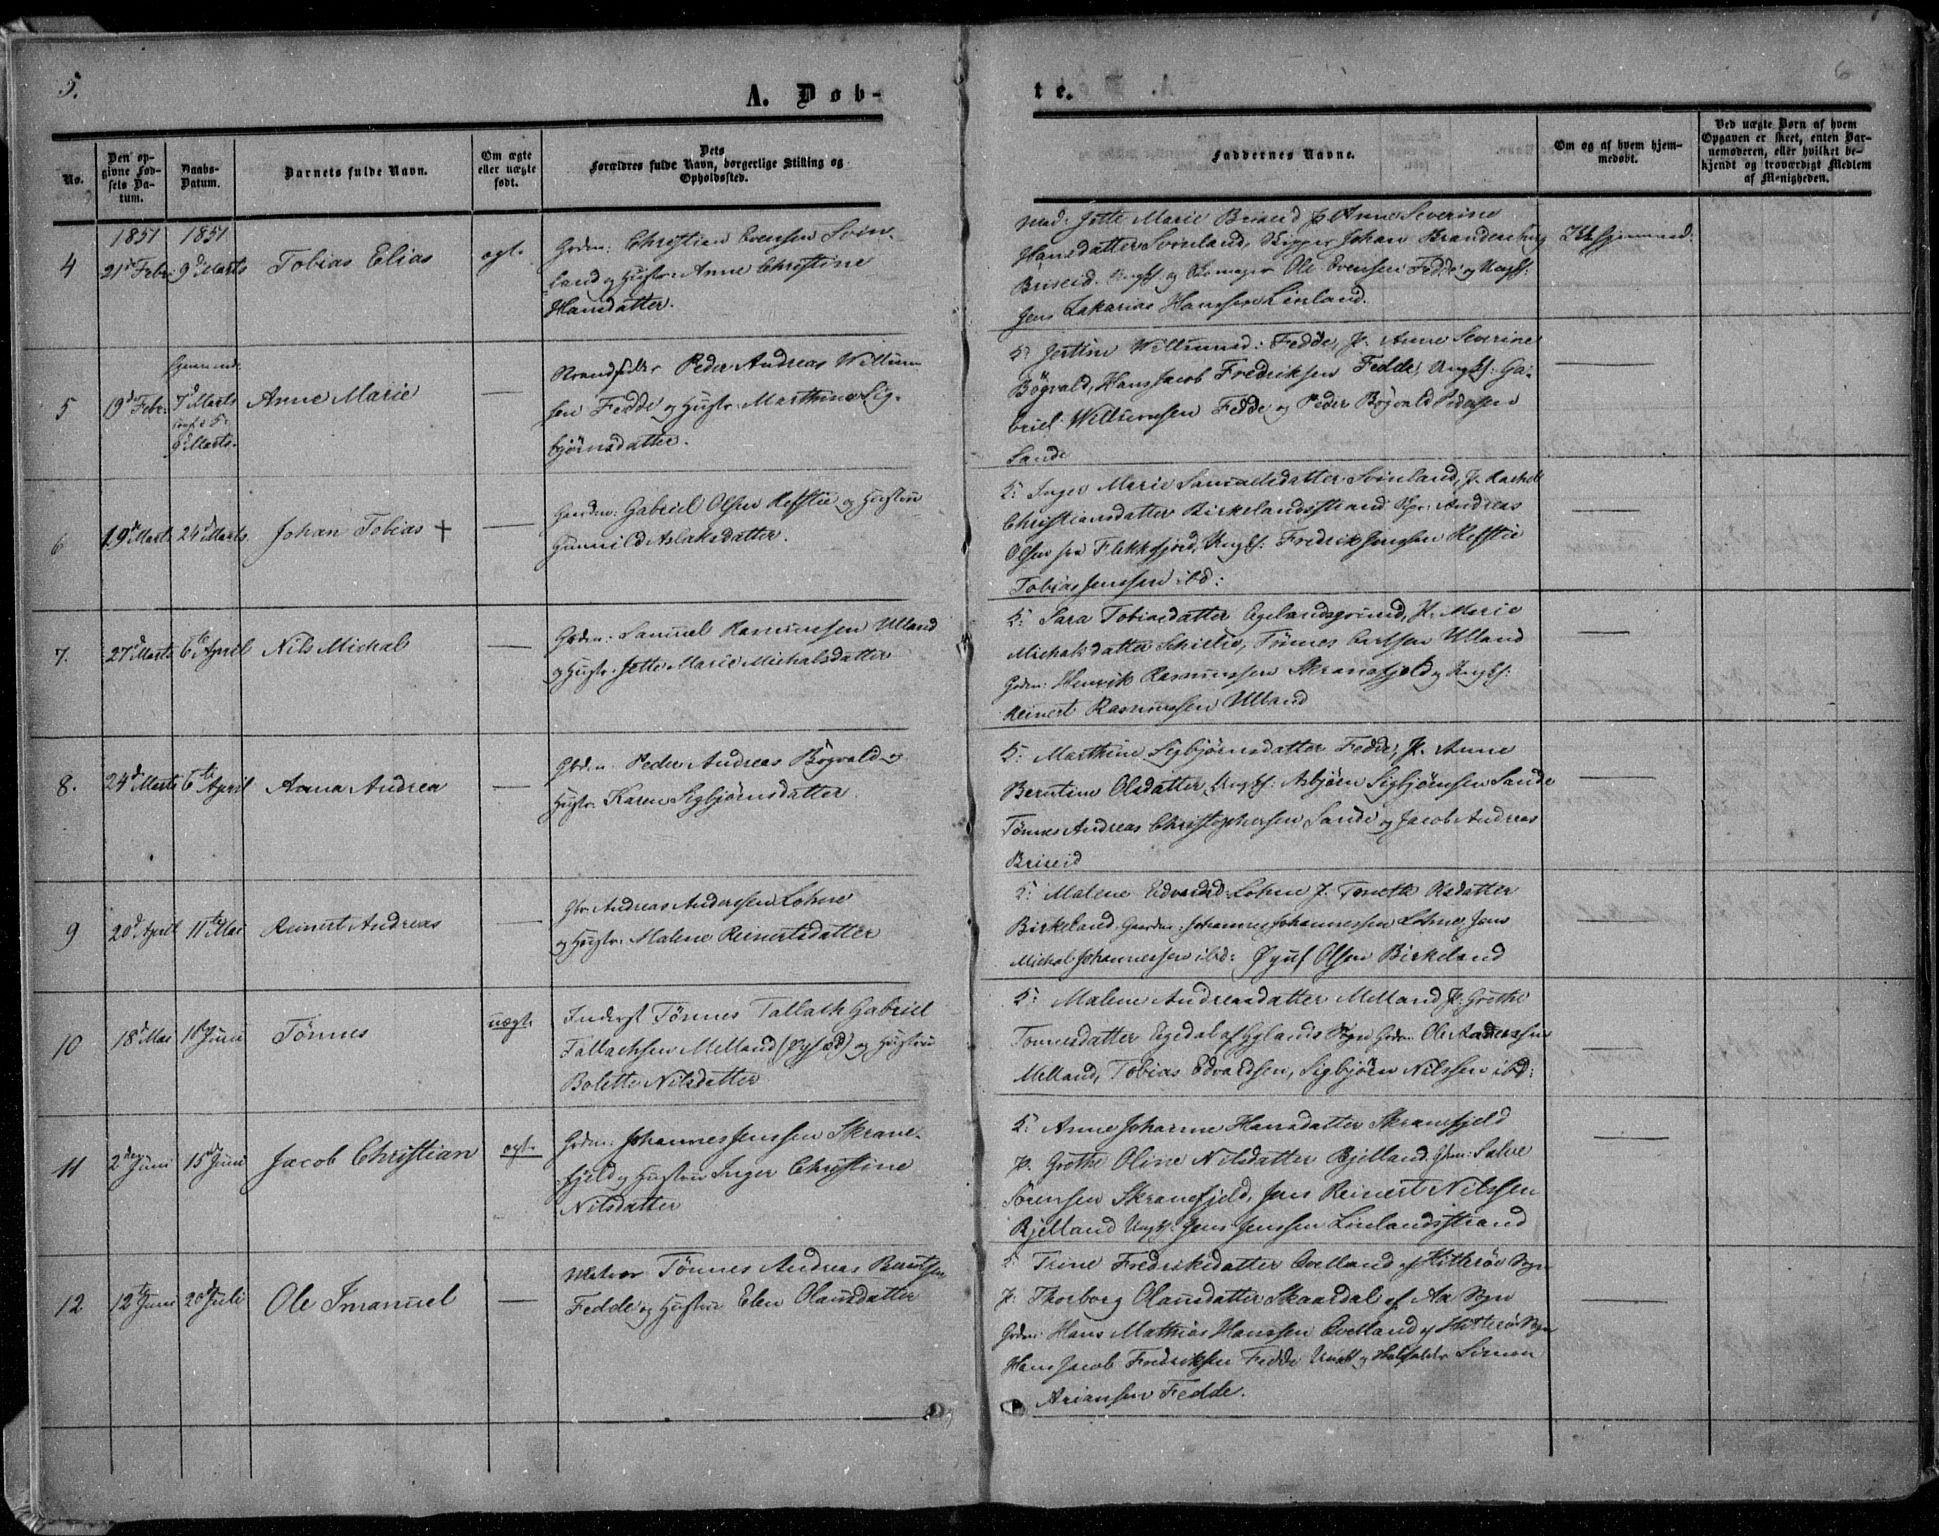 5.
6
A. Døb-
te.
No.
Den op-
givne Fød-
sels Da-
tum.
Daabs-
Datum.
Barnets fulde Navn.
Om ægte
eller uægte
født.
Dets
Forældres fulde Navn, borgerlige Stilling og
Opholdssted.
Faddernes Navne.
Om og af hvem hjem-
medøbt.
Ved uægte Børn af hvem
Opgaven er skeet, enten Bar-
nemoderen, eller hvilket be-
kjendt og troværdigt Medlem
af Menigheden.
1851 1851
4 21d Febr 9d Marts Tobias Elias ægt.
Grdm: Christian Evensen Svin-
land og Hustr: Anne Christine
Hansdatter.
Mad: Jette Marie Briseid J. Anne Severine
Hansdatter Svinland, Skipper Johan
Briseid Ole Evensen Fedde og Ungk:
Jens Zakarias Hanssen Linland.
5 19d Febr. 7d Marts
9d Marts. Anne Marie —
Strandsidder Peder Andreas Willum-
sen Fedde og Hustr. Marthine Sig-
bjørnsdatter.
K: Jertine Willumsd: Fedde, J. Anne Severine
Bøgvald, Hans Jacob Fredriksen Fedde, Ungk: Ga-
briel Willumsen Fedde og Peder Bøgvald Pedersen
Sande —
6 19d Marts 24d Marts Johan Tobias + —
Gaardm: Gabriel Olsen Refstie og Hustru
Gunnild Aslaksdatter.
K: Inger Marie Samuelsdatter Svinland, J. Rachel
Christiansdatter Birkelandsstrand Andreas
Olsen fra Flekkefjord, Ungk: Fredrik Jenssen Refstie
Tobias Jenssen ibd: —
7. 27d Marts 6te April Nils Michal —
Grdm: Samuel Rasmussen Ulland
og Hustr. Jette Marie Michalsdatter
K: Sara Tobiasdatter Egelandsgrund, J. Marie
Michalsdatter Tønnes Carlsen Ulland
Grdm: Henrik Rasmussen Skranefjeld og Ungk:
Reinert Rasmussen Ulland —
8. 24d Marts 6te April Anna Andrea —
Grdm. Peder Andreas Bøgvald og
Hustr. Karen Sigbjørnsdatter.
K: Marthine Sigbjørnsdatter Fedde, J. Anne
Berntine Olsdatter, Ungk: Asbjørn Sigbjørnsen Sande
Tønnes Andreas Christophersen Sande og Jacob Andreas
Briseid —
9 20d April 11te Mai Reinert Andreas —
Gbr. Andreas Anderssen Lohne
og Hustr. Malene Reinertsdatter
K: Malene Edvardsd. Lohne J. Tonette Olsdatter
Birkeland, Gaardm: Johannes Johannessen Lohne, Jens
Michal Johannessen ibd: Olsen Birkeland —
10 18d Mai 1d Juni Tønnes uægt.
Inderst Tønnes Tallak Gabriel
Tallachsen Melland og Hustru
Bolette Nilsdatter
K: Malene Andreasdatter Melland J. Grethe
Tønnesdatter Egedal af Eglands Sogn Grdm. Ole Anderssen
Melland, Tobias Edvardsen, Sigbjørn Nilssen ibd: —
11 2den Juni 15d Juni Jacob Christian ægt.
Grdm: Johannes Jenssen Skrane-
fjeld og Hustru Inger Christine
Nilsdatter
K: Anne Johanne Hansdatter Skranefjeld
J. Grethe Oline Nilsdatter Bjelland Gbm: Salve
Sørensen Skranefjeld, Jens Reinert Nilssen
Bjelland Ungk. Jens Jenssen Linlandsstrand —
12 12te Juni 20d Juli Ole Imanuel —
Tønnes Andreas Berntsen
Fedde og Hustru Elen Olausdatter
K: Trine Fredriksdatter Qvelland af Hitterøe Sogn
J. Thorborg Olausdatter Skaardal af Aa Sogn
Grdm: Hans Mathias Hanssen Qvelland af Hitterø Sogn
Hans Jacob Fredriksen Fedde Simon
Ariansen Fedde. —